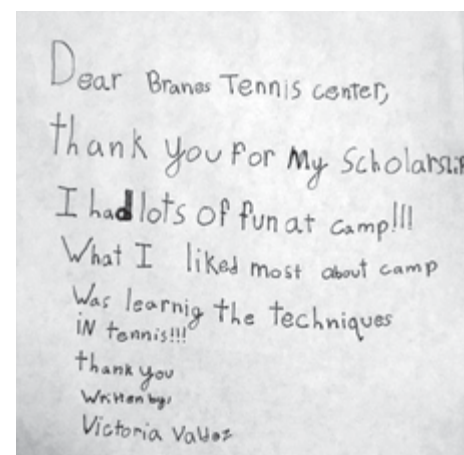 Dear Branes Tennis center,
thank you For My Scholarship
I had lots of fun at camp!!!
What I liked most about camp
Was learnig the techniques
iN tennis!!!
thank you
Written by:
Victoria Valdez